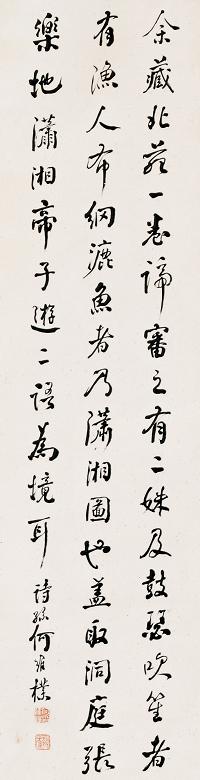 余藏北苑一卷諦審之有二姝及鼓瑟吹笙者
有漁人布網漉魚者乃瀟湘圖也蓋取洞庭張
樂地瀟湘帝子遊二語為境耳
詩孫何維樸